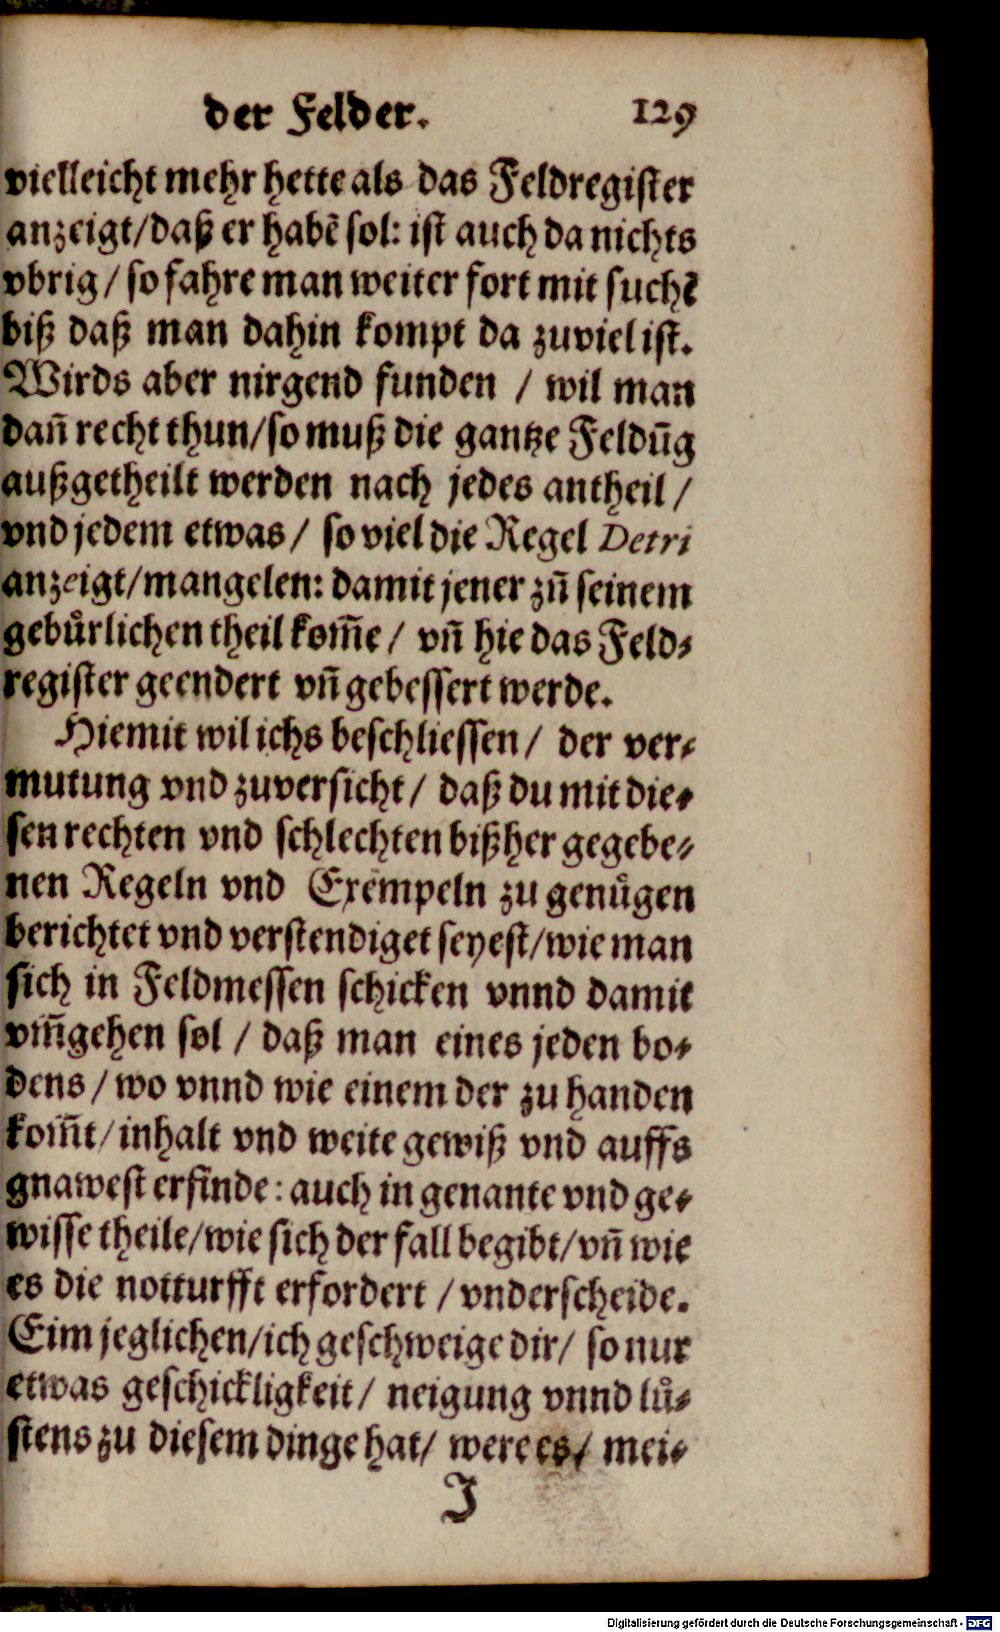 der Felder. 129
vielleicht mehr hette als das Feldregister
anzeigt/daß er habẽ sol: ist auch da nichts
vbrig/ so fahre man weiter fort mit suchẽ
biß daß man dahin kompt da zuviel ist.
Wirds aber nirgend funden / wil man
dañ recht thun/so muß die gantze Feldũg
außgetheilt werden nach jedes antheil/
vnd jedem etwas/ so viel die Regel Detri
anzeigt/mangelen: damit jener zũ seinem
gebuͤrlichen theil kom̃e/ vñ hie das Feld⸗
register geendert vñ gebessert werde.
Hiemit wil ichs beschliessen/ der ver⸗
mutung vnd zuversicht/ daß du mit die⸗
sen rechten vnd schlechten bißher gegebe⸗
nen Regeln vnd Exempeln zu genuͤgen
berichtet vnd verstendiget seyest/wie man
sich in Feldmessen schicken vnnd damit
vm̃gehen sol / daß man eines jeden bo⸗
dens/ wo vnnd wie einem der zu handen
kom̃t/inhalt vnd weite gewiß vnd auffs
gnawest erfinde: auch in genante vnd ge⸗
wisse theile/wie sich der fall begibt/vñ wie
es die notturfft erfordert /vnderscheide.
Eim jeglichen/ich geschweige dir/ so nur
etwas geschickligkeit/ neigung vnnd luͤ⸗
stens zu diesem dinge hat/ were es/ mei⸗
J
Digitalisierung gefördert durch die Deutsche Forschungsgemeinschaft - DFG